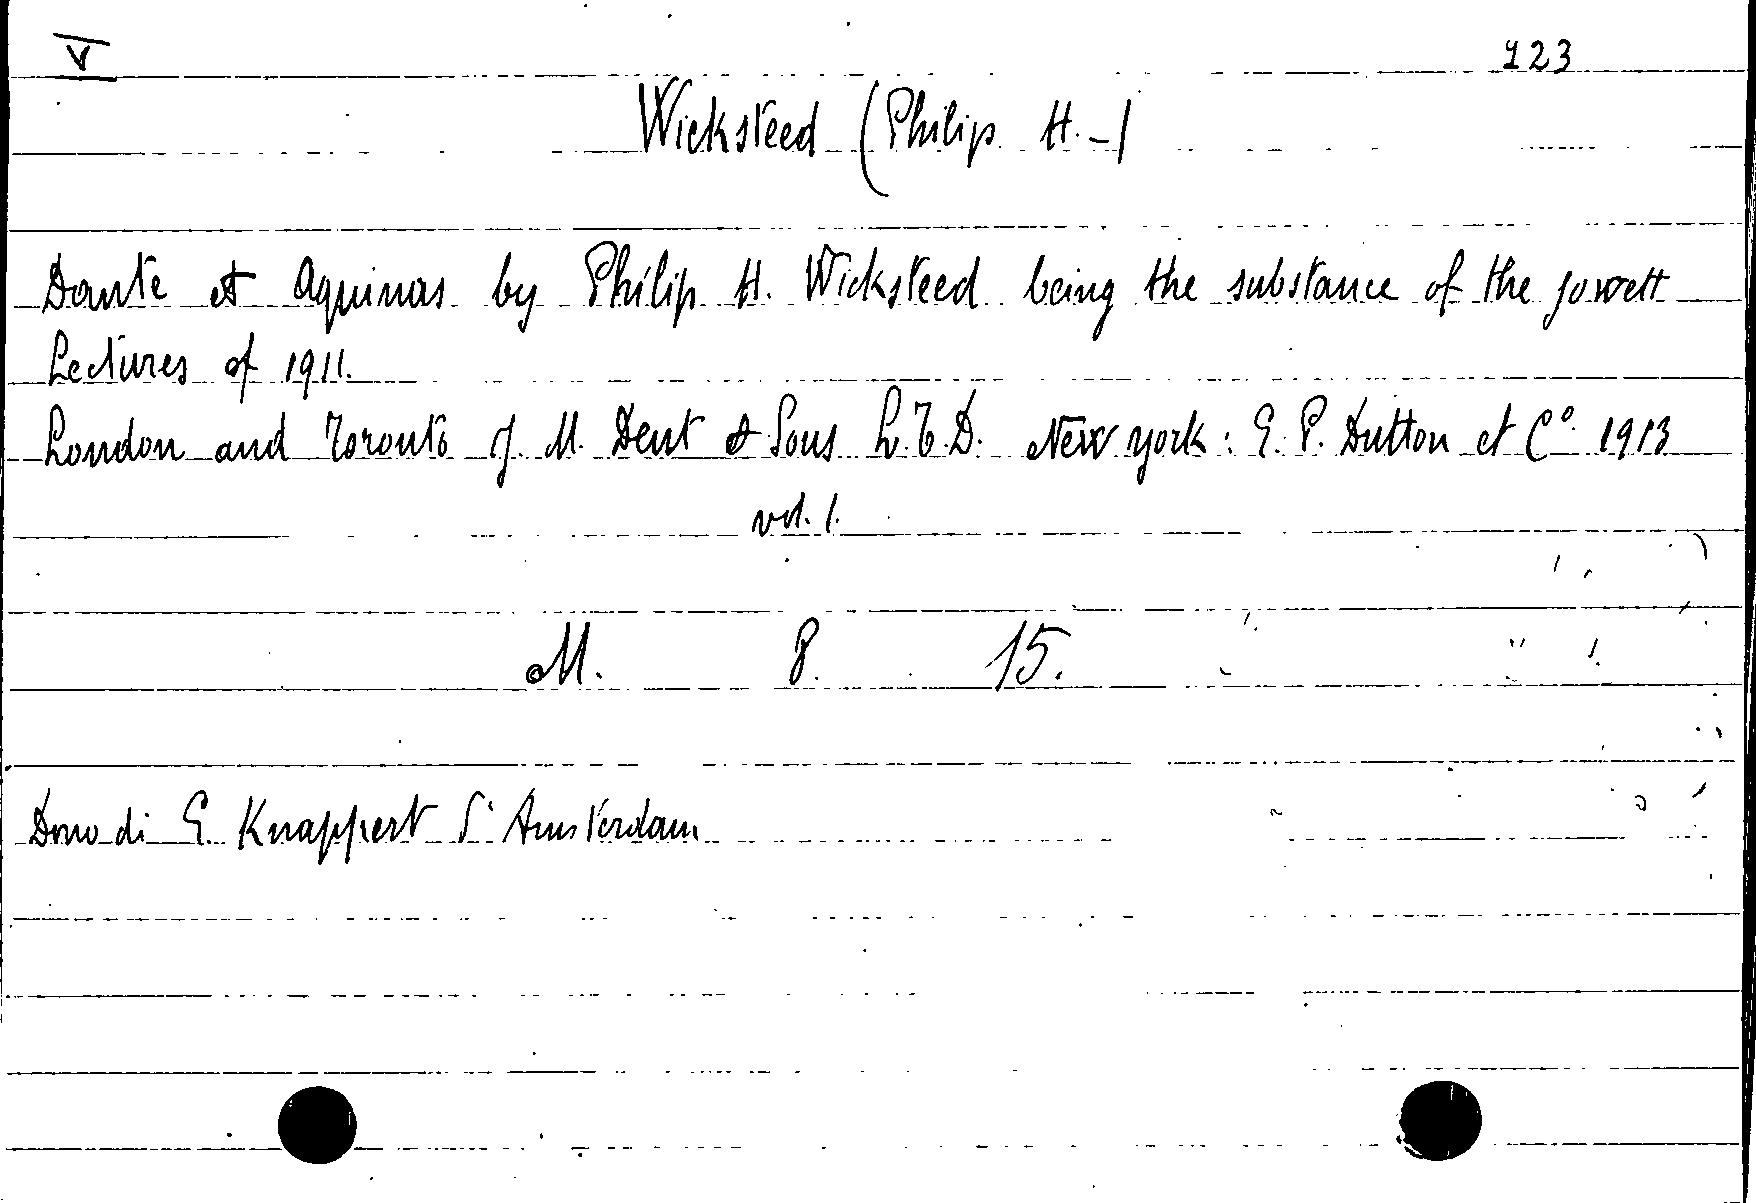 V 123
Wicksteed (Philip H.-)
Dante et Aquinas by Philip H. Wicksteed being the substance of the Jowett
Lectures of 1911.
London and Toronto J. M. Dent & Sons L.T.D. New York: E. P. Dutton et Cº. 1913
vol. 1.
M. 8. 15.
Dono di E. Knappert d'Amsterdam